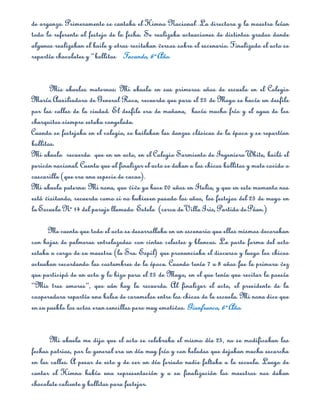 de organza. Primeramente se cantaba el Himno Nacional. La directora y la maestra leían
todo lo referente al festejo de la fecha. Se realizaba actuaciones de distintos grados donde
algunos realizaban el baile y otros recitaban versos sobre el escenario. Finalizado el acto se
repartía chocolates y "bollitos  Facundo, 6º Año.
Mis abuelos maternos: Mi abuela en sus primeros años de escuela en el Colegio
María Auxiliadora de General Roca, recuerda que para el 25 de Mayo se hacía un desfile
por las calles de la ciudad. El desfile era de mañana,  hacía mucho frío y el agua de los
charquitos siempre estaba congelada.
Cuando se festejaba en el colegio, se bailaban las danzas clásicas de la época y se repartían
bollitos.
Mi abuelo  recuerda  que en un acto, en el Colegio Sarmiento de Ingeniero White, bailó el
pericón nacional. Cuenta que al finalizar el acto se daban a los chicos bollitos y mate cocido o
cascarilla (que era una especie de cacao).
Mi abuela paterna: Mi nona, que vive ya hace 20 años en Italia, y que en este momento nos
está visitando, recuerda como si no hubiesen pasado los años, los festejos del 25 de mayo en
la Escuela Nº 14 del paraje llamado  Estela  (cerca de Villa Iris, Partido de Púan.)
Me cuenta que todo el acto se desarrollaba en un escenario que ellos mismos decoraban
con hojas de palmeras entrelazadas con cintas celestes y blancas. La parte formal del acto
estaba a cargo de su maestra (la Sra. Espil) que pronunciaba el discurso y luego los chicos
actuaban recordando las costumbres de la época. Cuando tenía 7 u 8 años fue la primera vez
que participó de un acto y lo hizo para el 25 de Mayo, en el que tenía que recitar la poesía
"Mis tres amores", que aún hoy la recuerda. Al finalizar el acto, el presidente de la
cooperadora repartía una bolsa de caramelos entre los chicos de la escuela. Mi nona dice que
en su pueblo los actos eran sencillos pero muy emotivos. Gianfranco, 6º Año.
Mi abuela me dijo que el acto se celebraba el mismo día 25, no se modificaban las
fechas patrias, por lo general era un día muy frío y con heladas que dejaban mucha escarcha
en las calles. A pesar de esto y de ser un día feriado nadie faltaba a la escuela. Luego de
cantar el Himno había una representación y a su finalización las maestras nos daban
chocolate caliente y bollitos para festejar.